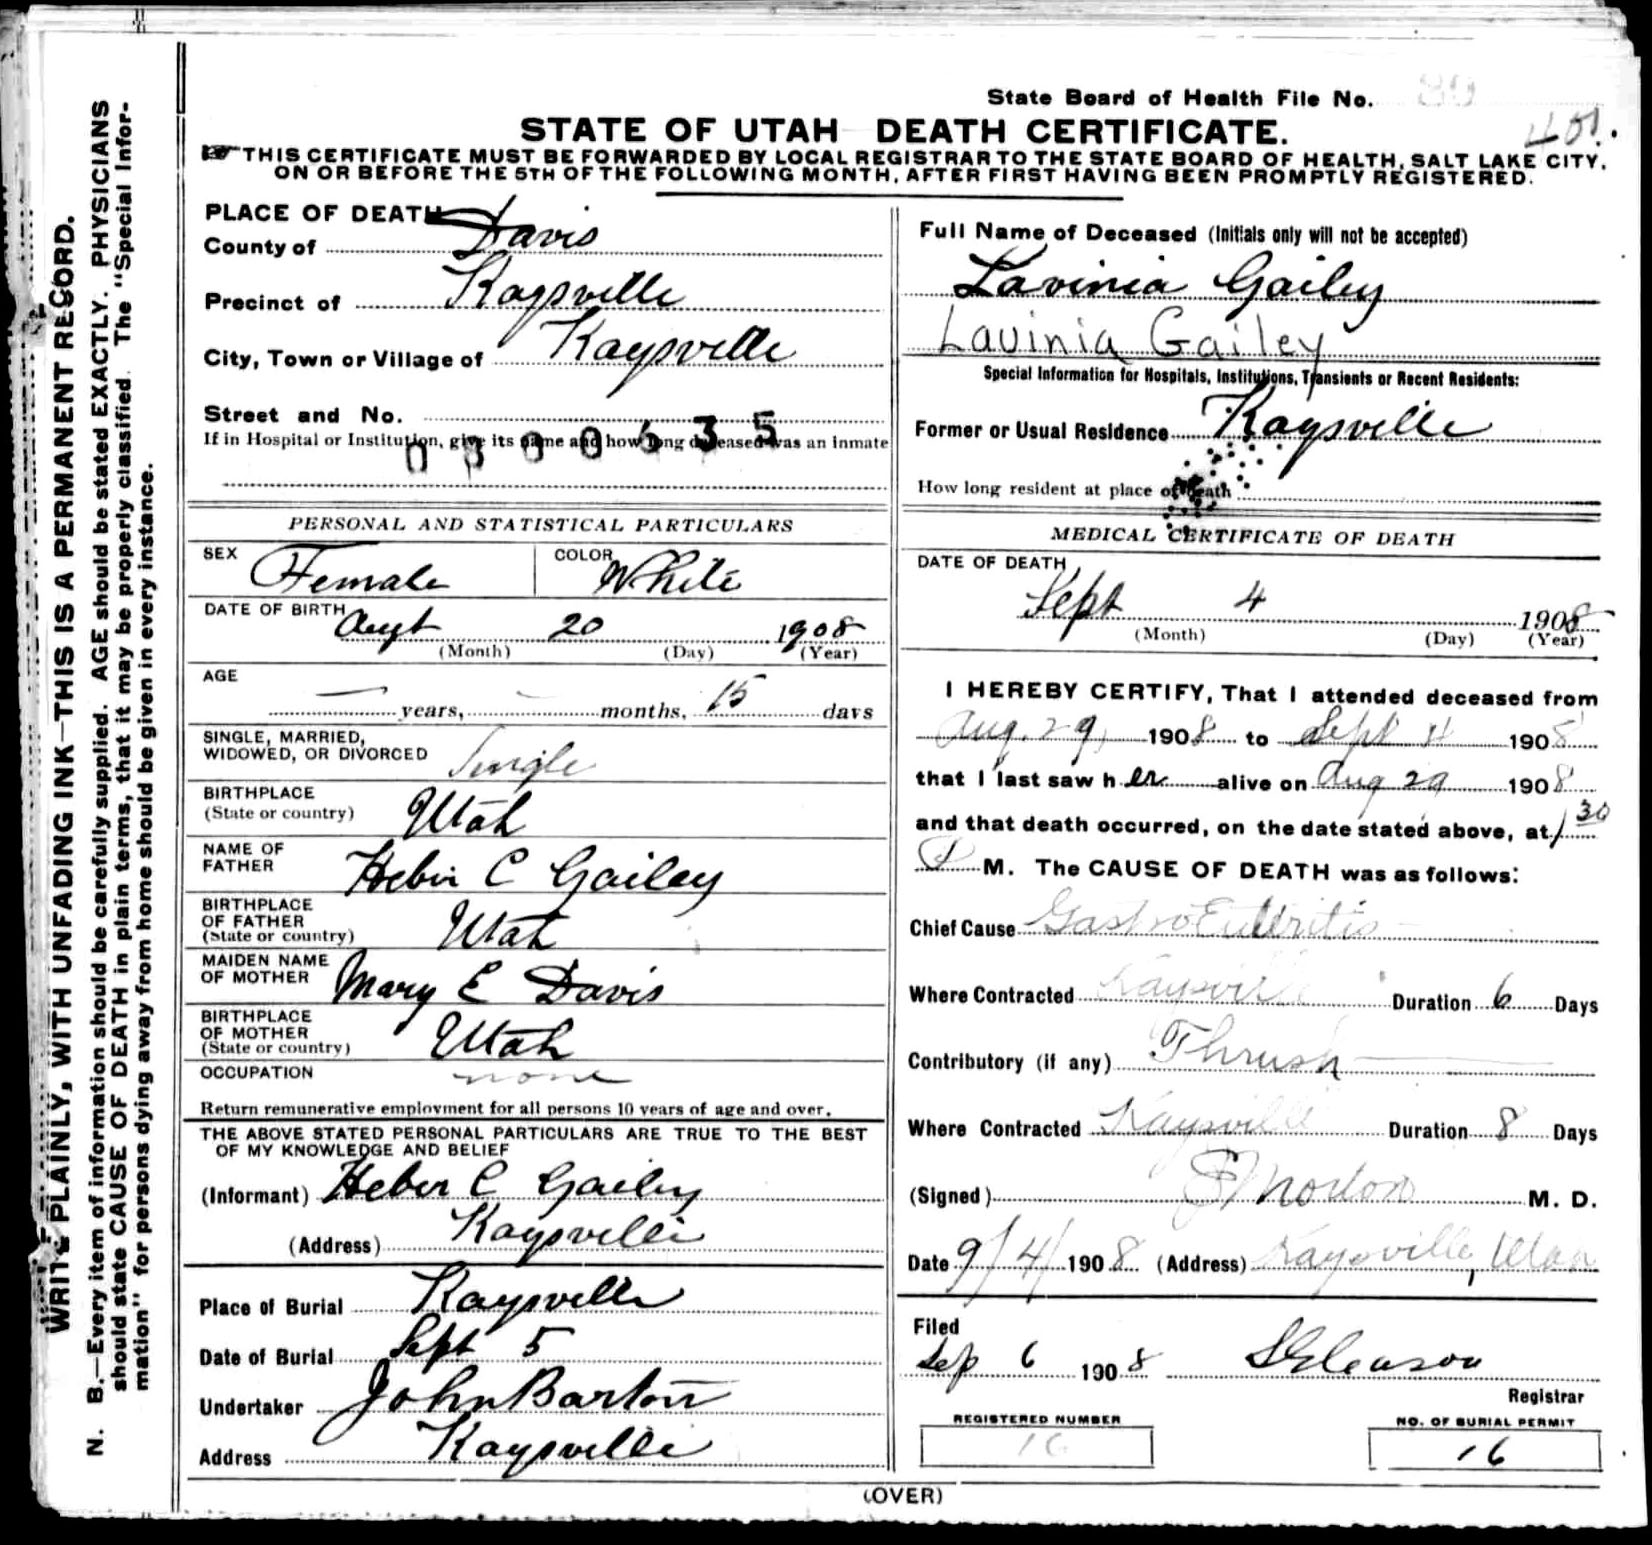 State Board of Health File No. 80
401.
STATE OF UTAH DEATH CERTIFICATE.
THIS CERTIFICATE MUST BE FORWARDED BY LOCAL REGISTRAR TO THE STATE BOARD OF HEALTH, SALT LAKE CITY,
ON OR BEFORE THE 5TH OF THE FOLLOWING MONTH, AFTER FIRST HAVING BEEN PROMPTLY REGISTERED.
WRITE PLAINLY, WITH UNFADING INK—THIS IS A PERMANENT RECORD.
N. B.—Every item of information should be carefully supplied. AGE should be stated EXACTLY. PHYSICIANS
should state CAUSE OF DEATH in plain terms, that it may be properly classified. The "Special Infor-
mation" for persons dying away from home should be given in every instance.
PLACE OF DEATH
County of Davis
Precinct of Kaysville
City, Town or Village of Kaysville
Street and No.
If in Hospital or Institution, give its name and how long deceased was an inmate
PERSONAL AND STATISTICAL PARTICULARS
SEX Female COLOR White
DATE OF BIRTH Augt 20 1908
(Month) (Day) (Year)
AGE
— years, — months, 15 days
SINGLE, MARRIED,
WIDOWED, OR DIVORCED Single
BIRTHPLACE
(State or country) Utah
NAME OF
FATHER Heber C Gailey
BIRTHPLACE
OF FATHER
(State or country) Utah
MAIDEN NAME
OF MOTHER Mary E Davis
BIRTHPLACE
OF MOTHER
(State or country) Utah
OCCUPATION none
Return remunerative employment for all persons 10 years of age and over.
THE ABOVE STATED PERSONAL PARTICULARS ARE TRUE TO THE BEST
OF MY KNOWLEDGE AND BELIEF
(Informant) Heber C Gailey
(Address) Kaysville
Place of Burial Kaysville
Date of Burial Sept 5
Undertaker John Barton
Address Kaysville
Full Name of Deceased (Initials only will not be accepted)
Lavinia Gailey
Lavinia Gailey
Special Information for Hospitals, Institutions, Transients or Recent Residents:
Former or Usual Residence Kaysville
How long resident at place of death
MEDICAL CERTIFICATE OF DEATH
DATE OF DEATH
Sept 4 1908
(Month) (Day) (Year)
I HEREBY CERTIFY, That I attended deceased from
Aug. 29, 1908 to Sept 4 1908
that I last saw her alive on Aug 29 1908
and that death occurred, on the date stated above, at 1 30
M. The CAUSE OF DEATH was as follows:
Chief Cause Gastro Enteritis
Where Contracted Kaysville Duration 6 Days
Contributory (if any) Thrush
Where Contracted Kaysville Duration 8 Days
(Signed) Morton M. D.
Date 9/4/1908 (Address) Kaysville, Utah
Filed
Sep 6 1908
Registrar
REGISTERED NUMBER
16
NO. OF BURIAL PERMIT
16
(OVER)